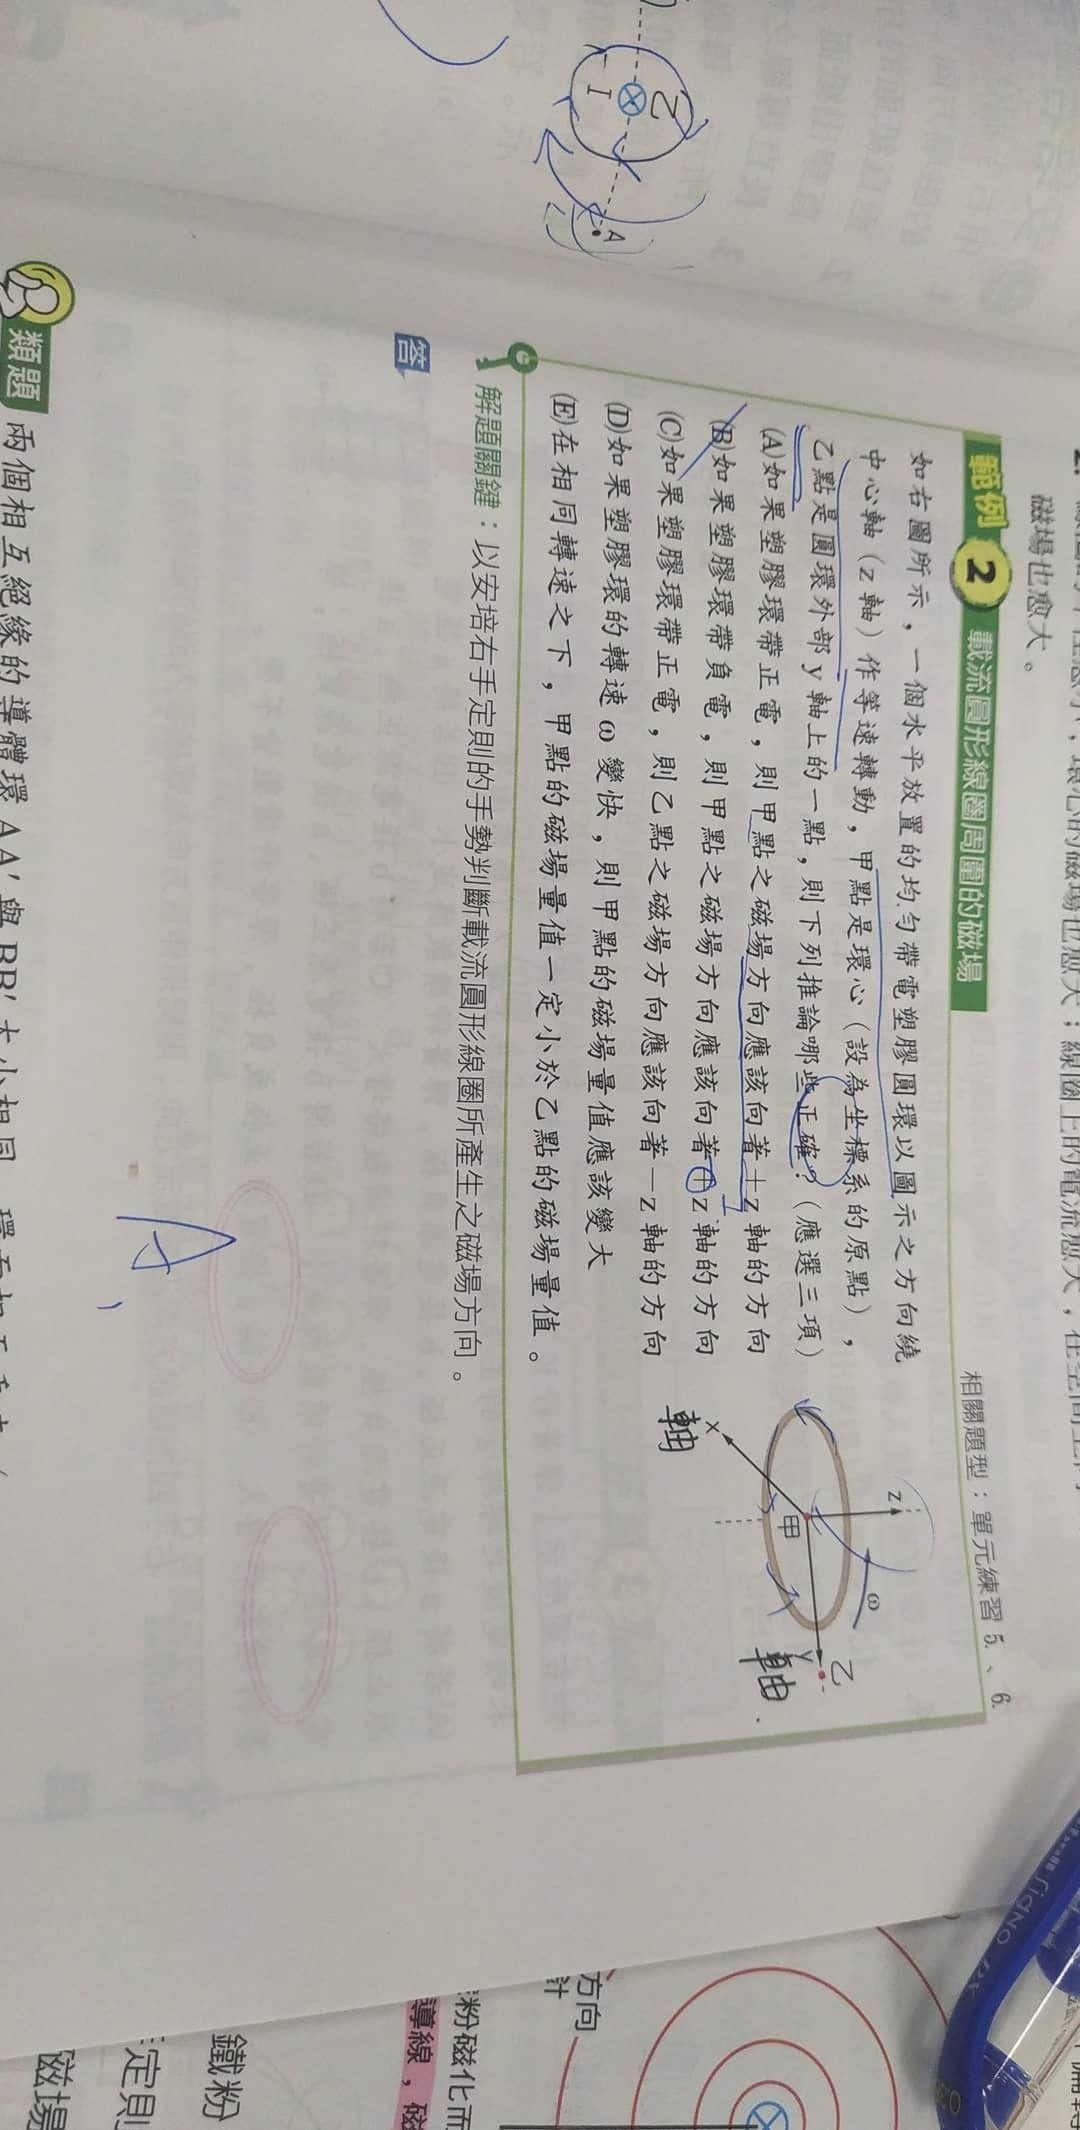 磁場也愈大。
範例 2 載流圓形線圈周圍的磁場
相關題型：單元練習 5.、6.
如右圖所示，一個水平放置的均勻帶電塑膠圓環以圖示之方向繞
中心軸（z 軸）作等速轉動，甲點是環心（設為坐標系的原點），
乙點是圓環外部 y 軸上的一點，則下列推論哪些正確？（應選三項）
(A)如果塑膠環帶正電，則甲點之磁場方向應該向著＋z 軸的方向
(B)如果塑膠環帶負電，則甲點之磁場方向應該向著＋z 軸的方向
(C)如果塑膠環帶正電，則乙點之磁場方向應該向著－z 軸的方向
(D)如果塑膠環的轉速 ω 變快，則甲點的磁場量值應該變大
(E)在相同轉速之下，甲點的磁場量值一定小於乙點的磁場量值。
z
ω
甲
乙
y
軸
x
軸
解題關鍵：以安培右手定則的手勢判斷載流圓形線圈所產生之磁場方向。
答
A
類題
兩個相互絕緣的導體環 AA′ 與 BB′ 大小相同
乙
I
A
方向
計
粉磁化而
導線，磁
鐵粉
定則
磁場